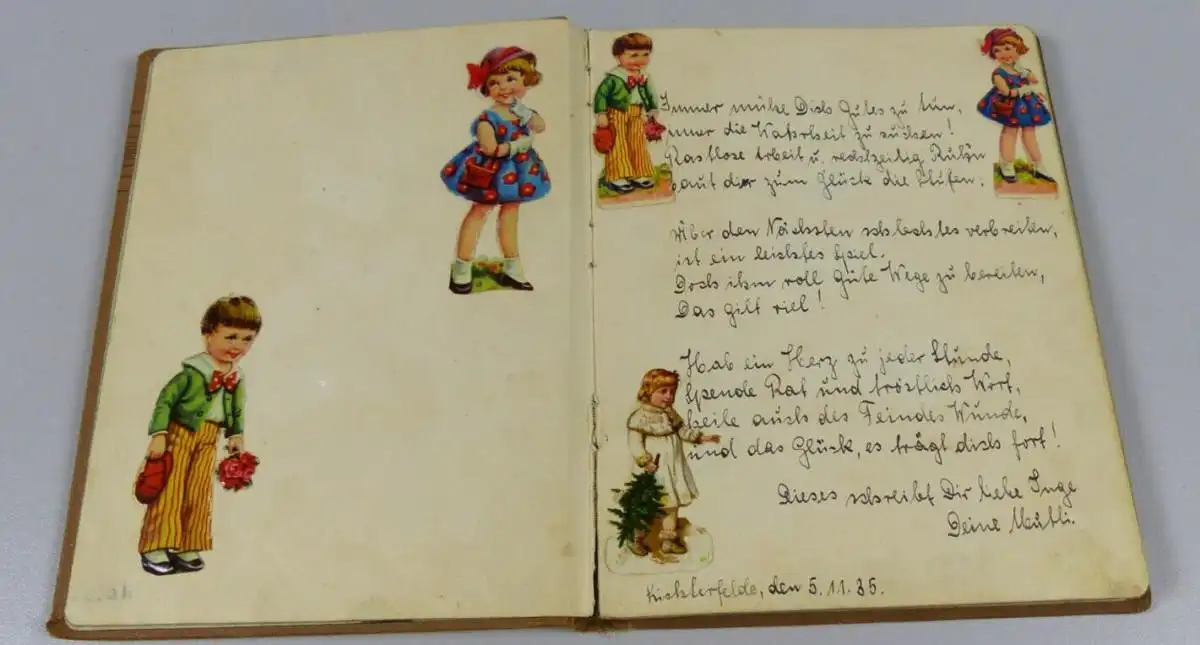 Immer mühe Dich Gutes zu tun,
immer die Wahrheit zu suchen!
Rastlose Arbeit u. rechtzeitig Ruh'n
baut dir zum Glück die Stufen.
Über den Nächsten schlechtes verbreiten,
ist ein leichtes Spiel.
Doch ihm voll Güte Wege zu bereiten,
Das gilt viel!
Hab ein Herz zu jeder Stunde,
spende Rat und tröstlich Wort,
heile auch des Feindes Wunde,
und das Glück, es trägt dich fort!
Dieses schreibt Dir liebe Inge
Deine Mutti.
Lichterfelde, den 5.11.35.